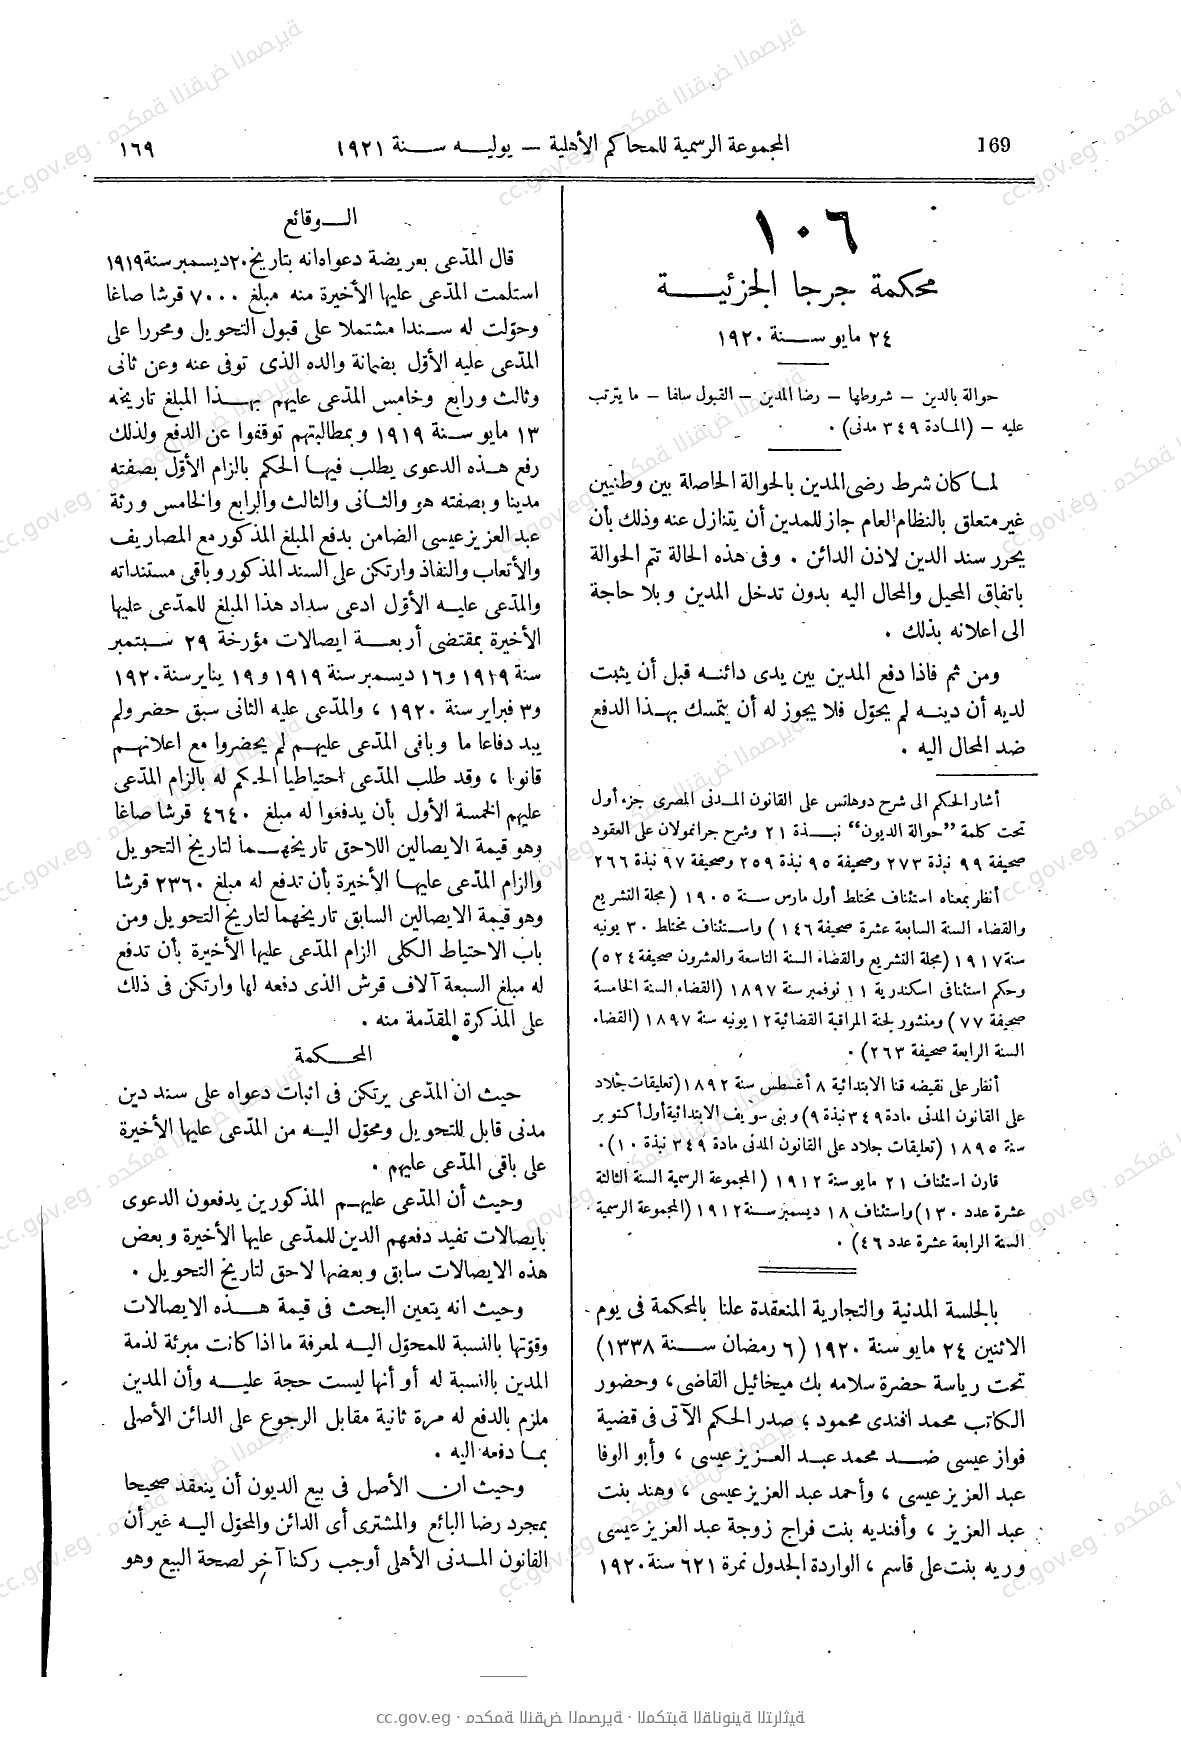 169
المجموعة الرسمية للمحاكم الأهلية – يوليه سنة ١٩٢١
١٦٩
١٠٦
محكمة جرجا الجزئية
٢٤ مايو سنة ١٩٢٠
حوالة بالدين – شروطها – رضا المدين – القبول سلفا – ما يترتب
عليه – (المادة ٣٤٩ مدنى) .
لما كان شرط رضى المدين بالحوالة الحاصلة بين وطنيين
غير متعلق بالنظام العام جاز للمدين أن يتنازل عنه وذلك بأن
يحرر سند الدين لاذن الدائن . وفى هذه الحالة تتم الحوالة
باتفاق المحيل والمحال اليه بدون تدخل المدين وبلا حاجة
الى اعلانه بذلك .
ومن ثم فاذا دفع المدين بين يدى دائنه قبل أن يثبت
لديه أن دينه لم يحوّل فلا يجوز له أن يتمسك بهذا الدفع
ضد المحال اليه .
أشار الحكم الى شرح دوهلتس على القانون المدنى المصرى جزء أول
تحت كلمة “حوالة الديون” نبذة ٢١ وشرح جرانمولان على العقود
صحيفة ٩٩ نبذة ٢٧٣ وصحيفة ٩٥ نبذة ٢٥٩ وصحيفة ٩٧ نبذة ٢٦٦
أنظر بمعناه استئناف مختلط أول مارس سنة ١٩٠٥ (مجلة التشريع
والقضاء السنة السابعة عشرة صحيفة ١٤٦) واستئناف مختلط ٣٠ يونيه
سنة ١٩١٧ (مجلة التشريع والقضاء السنة التاسعة والعشرون صحيفة ٥٢٤)
وحكم استئنافى اسكندرية ١١ نوفمبر سنة ١٨٩٧ (القضاء السنة الخامسة
صحيفة ٧٧) ومنشور لجنة المراقبة القضائية ١٢ يونيه سنة ١٨٩٧ (القضاء
السنة الرابعة صحيفة ٢٦٣) .
أنظر على نقيضه قنا الابتدائية ٨ أغسطس سنة ١٨٩٢ (تعليقات جلاد
على القانون المدنى مادة ٣٤٩ نبذة ٩) وبنى سويف الابتدائية أول أكتوبر
سنة ١٨٩٥ (تعليقات جلاد على القانون المدنى مادة ٣٤٩ نبذة ١٠) .
قارن استئناف ٢١ مايو سنة ١٩١٢ (المجموعة الرسمية السنة الثالثة
عشرة عدد ١٣٠) واستئناف ١٨ ديسمبر سنة ١٩١٢ (المجموعة الرسمية
السنة الرابعة عشرة عدد ٤٦) .
بالجلسة المدنية والتجارية المنعقدة علنا بالمحكمة فى يوم
الاثنين ٢٤ مايو سنة ١٩٢٠ (٦ رمضان سنة ١٣٣٨)
تحت رياسة حضرة سلامه بك ميخائيل القاضى، وحضور
الكاتب محمد افندى محمود، صدر الحكم الآتى فى قضية
فواز عيسى ضد محمد عبد العزيز عيسى ، وأبو الوفا
عبد العزيز عيسى ، وأحمد عبد العزيز عيسى ، وهند بنت
عبد العزيز ، وأفنديه بنت فراج زوجة عبد العزيز عيسى
وريه بنت على قاسم ، الواردة الجدول نمرة ٦٢١ سنة ١٩٢٠
الوقائع
قال المدّعى بعريضة دعواه انه بتاريخ ٢٠ ديسمبر سنة ١٩١٩
استلمت المدّعى عليها الأخيرة منه مبلغ ٧٠٠٠ قرشا صاغا
وحوّلت له سندا مشتملا على قبول التحويل ومحررا على
المدّعى عليه الأوّل بضمانة والده الذى توفى عنه وعن ثانى
وثالث ورابع وخامس المدّعى عليهم بهذا المبلغ تاريخه
١٣ مايو سنة ١٩١٩ وبمطالبتهم توقفوا عن الدفع ولذلك
رفع هذه الدعوى يطلب فيها الحكم بالزام الأوّل بصفته
مدينا وبصفته هو والثانى والثالث والرابع والخامس ورثة
عبد العزيز عيسى الضامن بدفع المبلغ المذكور مع المصاريف
والأتعاب والنفاذ وارتكن على السند المذكور وباقى مستنداته
والمدّعى عليه الأوّل ادعى سداد هذا المبلغ للمدّعى عليها
الأخيرة بمقتضى أربعة ايصالات مؤرخة ٢٩ سبتمبر
سنة ١٩١٩ و١٦ ديسمبر سنة ١٩١٩ و١٩ يناير سنة ١٩٢٠
و٣ فبراير سنة ١٩٢٠ ، والمدّعى عليه الثانى سبق حضر ولم
يبد دفاعا ما وباقى المدّعى عليهم لم يحضروا مع اعلانهم
قانونا ، وقد طلب المدّعى احتياطيا الحكم له بالزام المدّعى
عليهم الخمسة الأول بأن يدفعوا له مبلغ ٤٦٤٠ قرشا صاغا
وهو قيمة الايصالين اللاحق تاريخهما لتاريخ التحويل
والزام المدّعى عليها الأخيرة بأن تدفع له مبلغ ٢٣٦٠ قرشا
وهو قيمة الايصالين السابق تاريخهما لتاريخ التحويل ومن
باب الاحتياط الكلى الزام المدّعى عليها الأخيرة بأن تدفع
له مبلغ السبعة آلاف قرش الذى دفعه لها وارتكن فى ذلك
على المذكرة المقدّمة منه .
المحكمة
حيث ان المدّعى يرتكن فى اثبات دعواه على سند دين
مدنى قابل للتحويل ومحوّل اليه من المدّعى عليها الأخيرة
على باقى المدّعى عليهم .
وحيث أن المدّعى عليهم المذكورين يدفعون الدعوى
بايصالات تفيد دفعهم الدين للمدّعى عليها الأخيرة وبعض
هذه الايصالات سابق وبعضها لاحق لتاريخ التحويل .
وحيث انه يتعين البحث فى قيمة هذه الايصالات
وقوّتها بالنسبة للمحوّل اليه لمعرفة ما اذا كانت مبرئة لذمة
المدين بالنسبة له أو أنها ليست حجة عليه وأن المدين
ملزم بالدفع له مرة ثانية مقابل الرجوع على الدائن الأصلى
بما دفعه اليه .
وحيث ان الأصل فى بيع الديون أن ينعقد صحيحا
بمجرد رضا البائع والمشترى أى الدائن والمحوّل اليه غير أن
القانون المدنى الأهلى أوجب ركنا آخر لصحة البيع وهو
cc.gov.eg · محكمة النقض المصرية · المكتبة القانونية التراثية